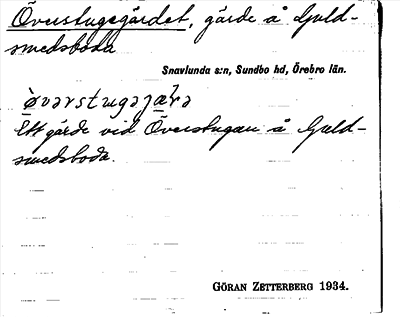 Överstugegärdet, gärde å Guld-
smedsboda
Snavlunda s:n, Sundbo hd, Örebro län.
Ett gärde vid Överstugan å Guld-
smedsboda.
GÖRAN ZETTERBERG 1934.